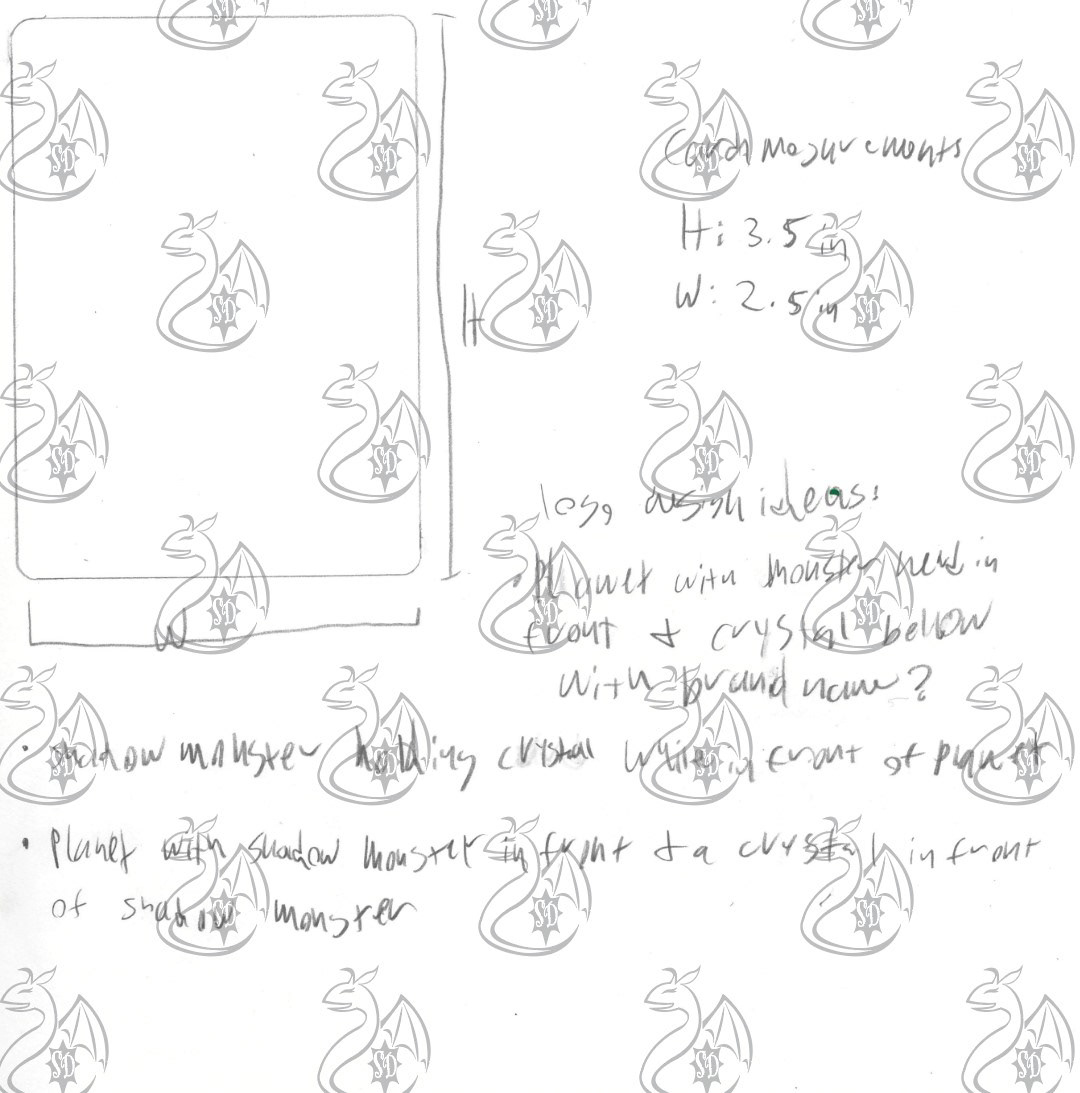 Card Mesurements
H: 3.5 in
W: 2.5 in
H
logo design ideas:
• Planet with monster head in
front & crystal bellow
with brand name?
W
• shadow monster holding crystal while in front of planet
• Planet with shadow monster in front & a crystal in front
of shadow monster
SD